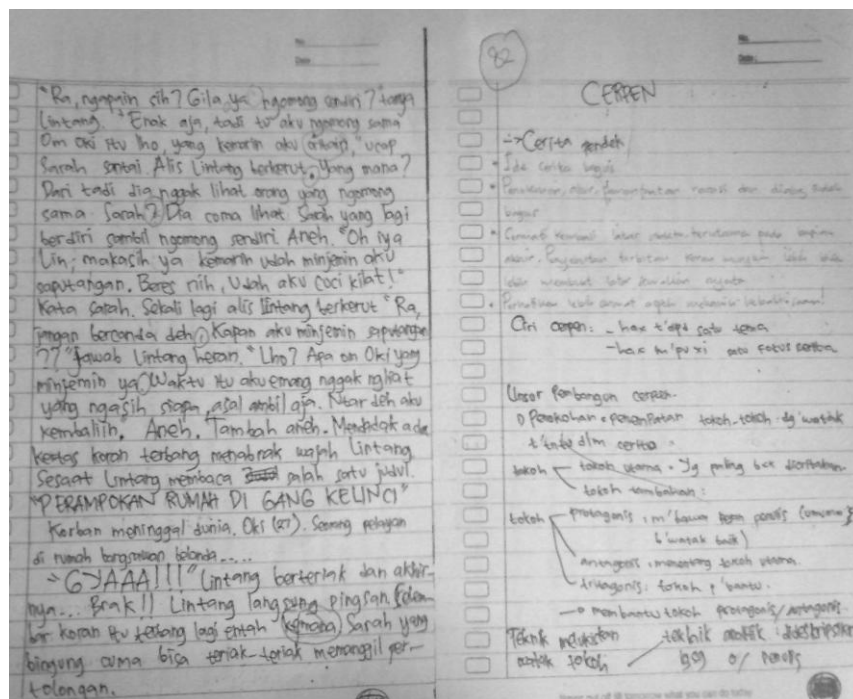 No.
Date
"Ra, ngapain sih? Gila, ya ngomong sendiri? tanya
Lintang. "Enak aja, tadi tu aku ngomong sama
Om Oki itu lho, yang kemarin aku critain," ucap
Sarah santai. Alis Lintang berkerut, Yang mana?
Dari tadi dia nggak lihat orang yang ngomong
sama Sarah? Dia cuma lihat Sarah yang lagi
berdiri sambil ngomong sendiri. Aneh. "Oh iya
Lin, makasih ya kemarin udah minjemin aku
saputangan. Beres nih, Udah aku cuci kilat!"
Kata Sarah. Sekali lagi alis Lintang berkerut "Ra,
jangan bercanda deh, Kapan aku minjemin saputangan
??" Jawab Lintang heran. "Lho? Apa om Oki yang
minjemin ya. Waktu itu aku emang nggak ngliat
yang ngasih siapa, asal ambil aja. Ntar deh aku
kembaliin." Aneh. Tambah aneh. Mendadak ada
kertas koran terbang menabrak wajah Lintang
Sesaat Lintang membaca salah satu judul.
"PERAMPOKAN RUMAH DI GANG KELINCI"
Korban meninggal dunia. Oki (27). Seorang pelayan
di rumah bangsawan belanda.....
"GYAAA!!!" Lintang berteriak dan akhir-
nya... Brak!! Lintang langsung pingsan. Selem-
bar koran itu terbang lagi entah kemana. Sarah yang
bingung cuma bisa teriak-teriak memanggil per-
tolongan.
82
No.
Date :
CERPEN
-> Cerita pendek
• Ide cerita bagus
• Penokohan, alur, dan dialog sudah
bagus
• latar terutama pada bagian
akhir. terbitan koran lebih
membuat latar
• lebih cermat
Ciri cerpen : - satu tema
- satu fokus cerita
Unsur Pembangun cerpen.
Penokohan = penempatan tokoh-tokoh dg watak
t'tntu dlm cerita.
tokoh tokoh utama = Yg paling diceritakan.
tokoh tambahan :
tokoh protagonis : m'bawa
b'watak baik)
antagonis : menentang tokoh utama.
tritagonis : tokoh p'bantu.
-> membantu tokoh protagonis/antagonis.
Teknik melukiskan teknik analitik : dideskripsikan
watak tokoh lgsg o/ penulis